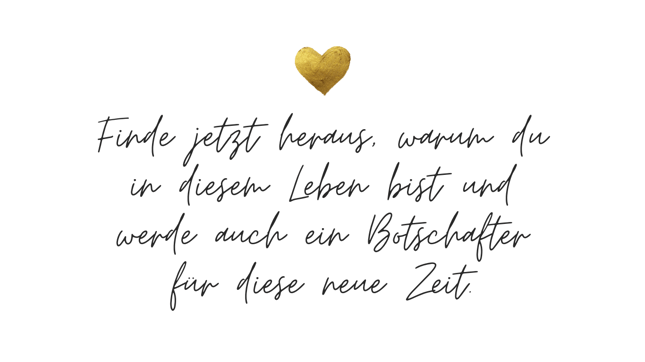 Finde jetzt heraus, warum du
in diesem Leben bist und
werde auch ein Botschafter
für diese neue Zeit.